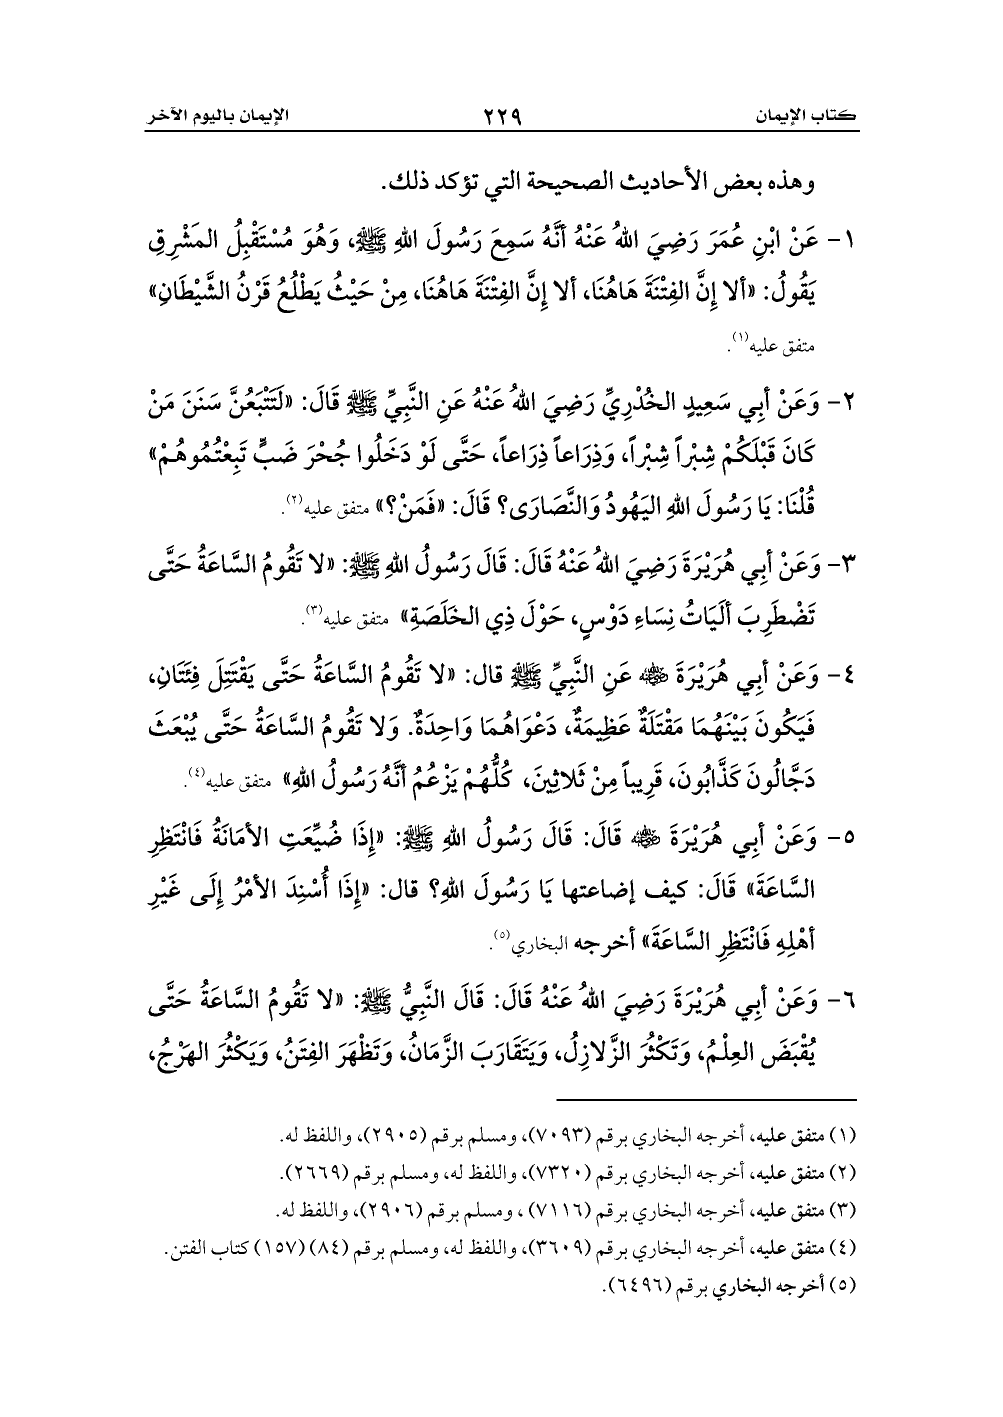 كتاب الإيمان ٢٢٩ الإيمان باليوم الآخر
وهذه بعض الأحاديث الصحيحة التي تؤكد ذلك.
١- عَنْ ابْنِ عُمَرَ رَضِيَ اللهُ عَنْهُ أنَّهُ سَمِعَ رَسُولَ اللهِ ﷺ، وَهُوَ مُسْتَقْبِلُ المَشْرِقِ
يَقُولُ: «ألا إِنَّ الفِتْنَةَ هَاهُنَا، ألا إِنَّ الفِتْنَةَ هَاهُنَا، مِنْ حَيْثُ يَطْلُعُ قَرْنُ الشَّيْطَانِ»
متفق عليه(١).
٢- وَعَنْ أبِي سَعِيدٍ الخُدْرِيِّ رَضِيَ اللهُ عَنْهُ عَنِ النَّبِيِّ ﷺ قَالَ: «لَتَتْبَعُنَّ سَنَنَ مَنْ
كَانَ قَبْلَكُمْ شِبْراً شِبْراً، وَذِرَاعاً ذِرَاعاً، حَتَّى لَوْ دَخَلُوا جُحْرَ ضَبٍّ تَبِعْتُمُوهُمْ»
قُلْنَا: يَا رَسُولَ اللهِ اليَهُودُ وَالنَّصَارَى؟ قَالَ: «فَمَنْ؟» متفق عليه(٢).
٣- وَعَنْ أبِي هُرَيْرَةَ رَضِيَ اللهُ عَنْهُ قَالَ: قَالَ رَسُولُ اللهِ ﷺ: «لا تَقُومُ السَّاعَةُ حَتَّى
تَضْطَرِبَ ألَيَاتُ نِسَاءِ دَوْسٍ، حَوْلَ ذِي الخَلَصَةِ» متفق عليه(٣).
٤- وَعَنْ أبِي هُرَيْرَةَ ﵁ عَنِ النَّبِيِّ ﷺ قال: «لا تَقُومُ السَّاعَةُ حَتَّى يَقْتَتِلَ فِئَتَانِ،
فَيَكُونَ بَيْنَهُمَا مَقْتَلَةٌ عَظِيمَةٌ، دَعْوَاهُمَا وَاحِدَةٌ. وَلا تَقُومُ السَّاعَةُ حَتَّى يُبْعَثَ
دَجَّالُونَ كَذَّابُونَ، قَرِيباً مِنْ ثَلاثِينَ، كُلُّهُمْ يَزْعُمُ أنَّهُ رَسُولُ اللهِ» متفق عليه(٤).
٥- وَعَنْ أبِي هُرَيْرَةَ ﵁ قَالَ: قَالَ رَسُولُ اللهِ ﷺ: «إِذَا ضُيِّعَتِ الأمَانَةُ فَانْتَظِرِ
السَّاعَةَ» قَالَ: كيف إضاعتها يَا رَسُولَ اللهِ؟ قال: «إِذَا أُسْنِدَ الأمْرُ إِلَى غَيْرِ
أهْلِهِ فَانْتَظِرِ السَّاعَةَ» أخرجه البخاري(٥).
٦- وَعَنْ أبِي هُرَيْرَةَ رَضِيَ اللهُ عَنْهُ قَالَ: قَالَ النَّبِيُّ ﷺ: «لا تَقُومُ السَّاعَةُ حَتَّى
يُقْبَضَ العِلْمُ، وَتَكْثُرَ الزَّلازِلُ، وَيَتَقَارَبَ الزَّمَانُ، وَتَظْهَرَ الفِتَنُ، وَيَكْثُرَ الهَرْجُ،
(١) متفق عليه، أخرجه البخاري برقم (٧٠٩٣)، ومسلم برقم (٢٩٠٥)، واللفظ له.
(٢) متفق عليه، أخرجه البخاري برقم (٧٣٢٠)، واللفظ له، ومسلم برقم (٢٦٦٩).
(٣) متفق عليه، أخرجه البخاري برقم (٧١١٦) ، ومسلم برقم (٢٩٠٦)، واللفظ له.
(٤) متفق عليه، أخرجه البخاري برقم (٣٦٠٩)، واللفظ له، ومسلم برقم (٨٤) (١٥٧) كتاب الفتن.
(٥) أخرجه البخاري برقم (٦٤٩٦).